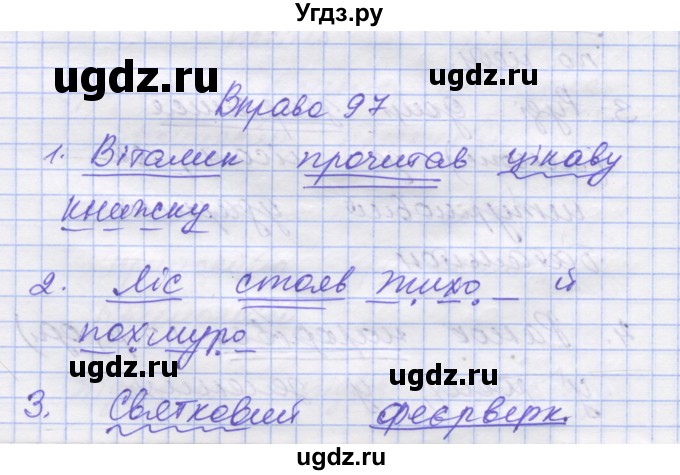 Угдз.ру
ugdz.ru ugdz.ru
Вправа 97
1. Віталик прочитав цікаву
книжку.
ugdz.ru
2. Ліс стояв тихо й
похмуро
ugdz.ru ugdz.ru
3. Святковий феєрверк